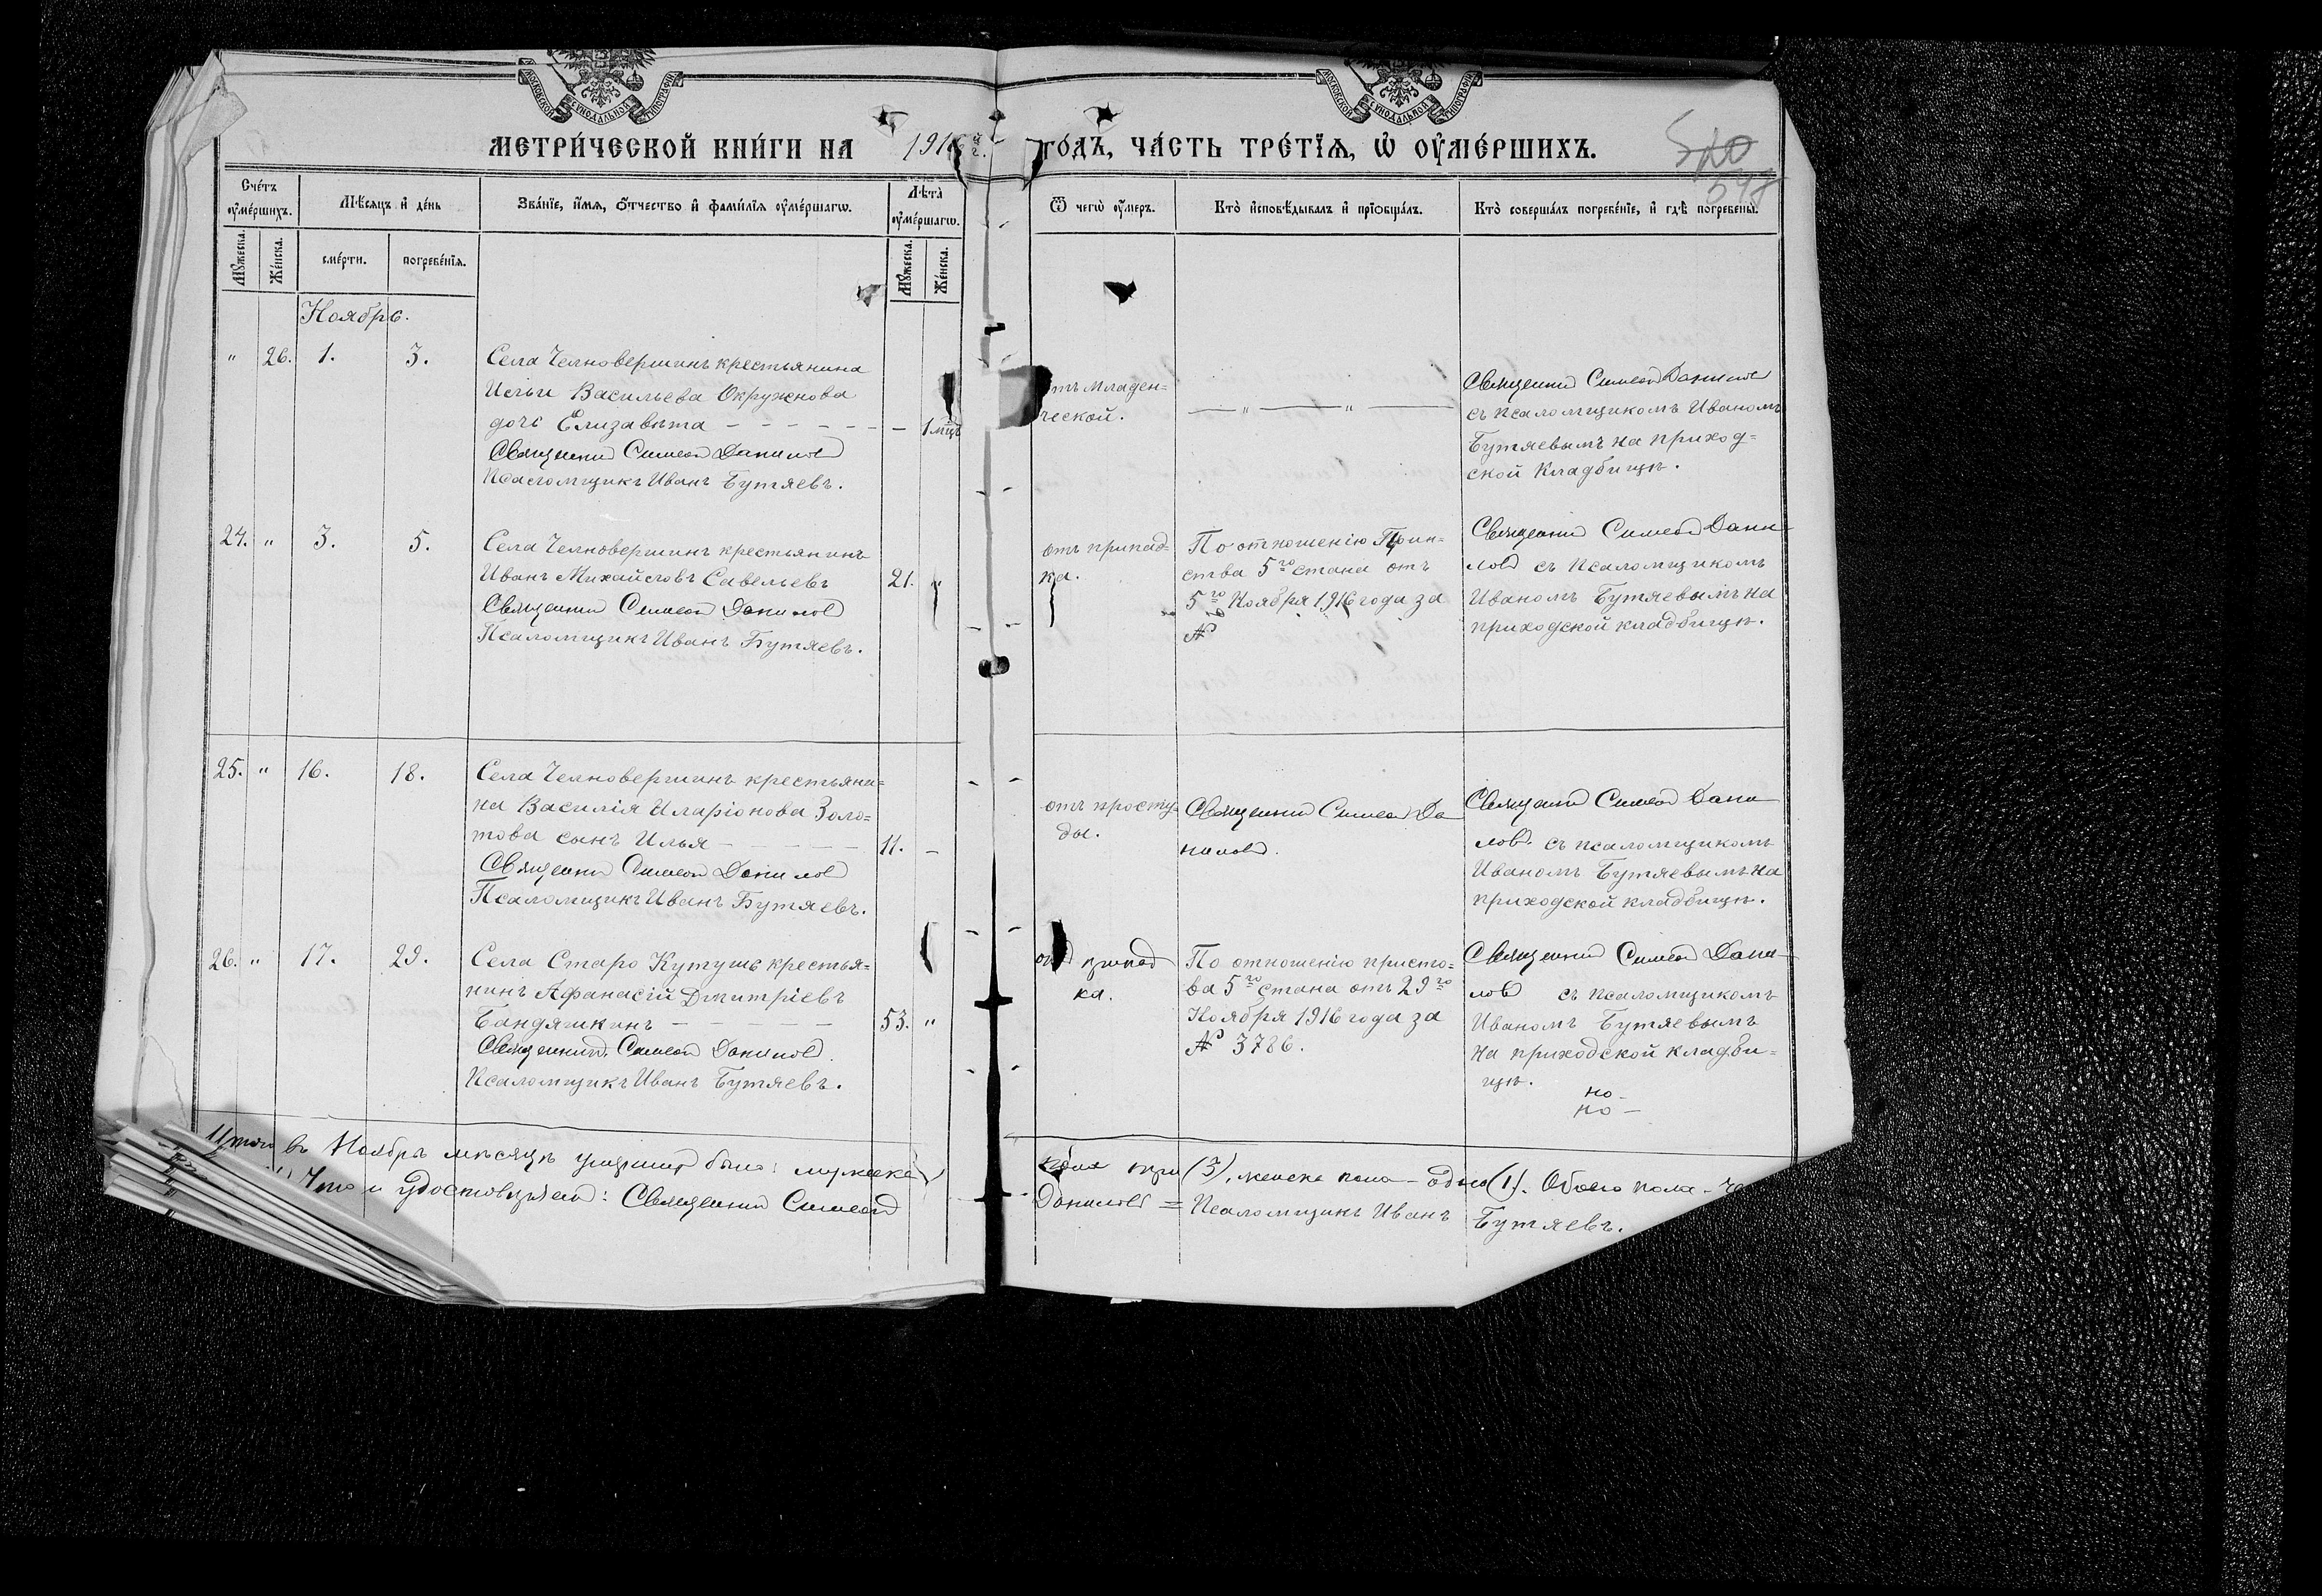 МОСКОВСКОЙ СѴНОДАЛЬНОЙ ТИПОГРАФІИ
МОСКОВСКОЙ СѴНОДАЛЬНОЙ ТИПОГРАФІИ
МЕТРИ́ЧЕСКОЙ КНИ́ГИ НА 1916 й г. ГО́ДЪ, ЧА́СТЬ ТРЕ́ТЇѦ, Ѡ҆ ОУ҆МЕ́РШИХЪ.
540
548
Сче́тъ оу҆ме́ршихъ.
Мѣ́сяцъ и҆ де́нь
Зва́нїе, и҆́мя, о҆́тчество и҆ фами́лїя оу҆ме́ршагѡ.
Лѣ́та оу҆ме́ршагѡ.
Ѿ чегѡ̀ оу҆́меръ.
Кто̀ и҆сповѣ́дывалъ и҆ прїѡбща́лъ.
Кто̀ соверша́лъ погребе́нїе, и҆ гдѣ̀ погребены̀.
Мꙋ́жеска.
Же́нска.
сме́рти.
погребе́нїя.
Мꙋ́жеска.
Же́нска.
Ноябрь.
" 26. 1. 3.
Села Челновершинъ крестьянина
Ильи Васильева Окружнова
дочь Елизавета - - - - - - - 1 мцъ
Священникъ Симеонъ Даниловъ
Псаломщикъ Иванъ Бутяевъ.
отъ младен=
ческой.
— " — " —
Священникъ Симеонъ Даниловъ
съ псаломщикомъ Иваномъ
Бутяевымъ на приход=
ской кладбищѣ.
24. " 3. 5.
Села Челновершинъ крестьянинъ
Иванъ Михайловъ Савельевъ 21. "
Священникъ Симеонъ Даниловъ
Псаломщикъ Иванъ Бутяевъ.
отъ припад=
ка.
По отношенію
ства 5го стана отъ
5го Ноября 1916 года за
№
Священникъ Симеонъ Дани
ловъ съ псаломщикомъ
Иваномъ Бутяевымъ на
приходской кладбищѣ.
25. " 16. 18.
Села Челновершинъ крестьяни=
на Василія Иларіонова Золо=
това сынъ Илья - - - - - - 11. -
Священникъ Симеонъ Даниловъ
Псаломщикъ Иванъ Бутяевъ.
отъ просту=
ды.
Священникъ Симеонъ Да
ниловъ.
Священникъ Симеонъ Дани
ловъ съ псаломщикомъ
Иваномъ Бутяевымъ на
приходской кладбищѣ.
26. " 17. 29.
Села Старо Кутушь крестья=
нинъ Афанасій Дмитріевъ
Бандяшкинъ - - - - - 53. "
Священникъ Симеонъ Даниловъ.
Псаломщикъ Иванъ Бутяевъ.
отъ припад
ка.
По отношенію присто=
ва 5го стана отъ 29го
Ноября 1916 года за
№ 3786.
Священникъ Симеонъ Дани
ловъ съ псаломщикомъ
Иваномъ Бутяевымъ
на приходской кладби=
щѣ.
но -
но -
Итого въ Ноябрѣ мѣсяцѣ умершихъ было: мужска пола три (3), женска пола - одна (1). Обоего пола -
Что и удостовѣряемъ: Священникъ Симеонъ Даниловъ = Псаломщикъ Иванъ Бутяевъ.